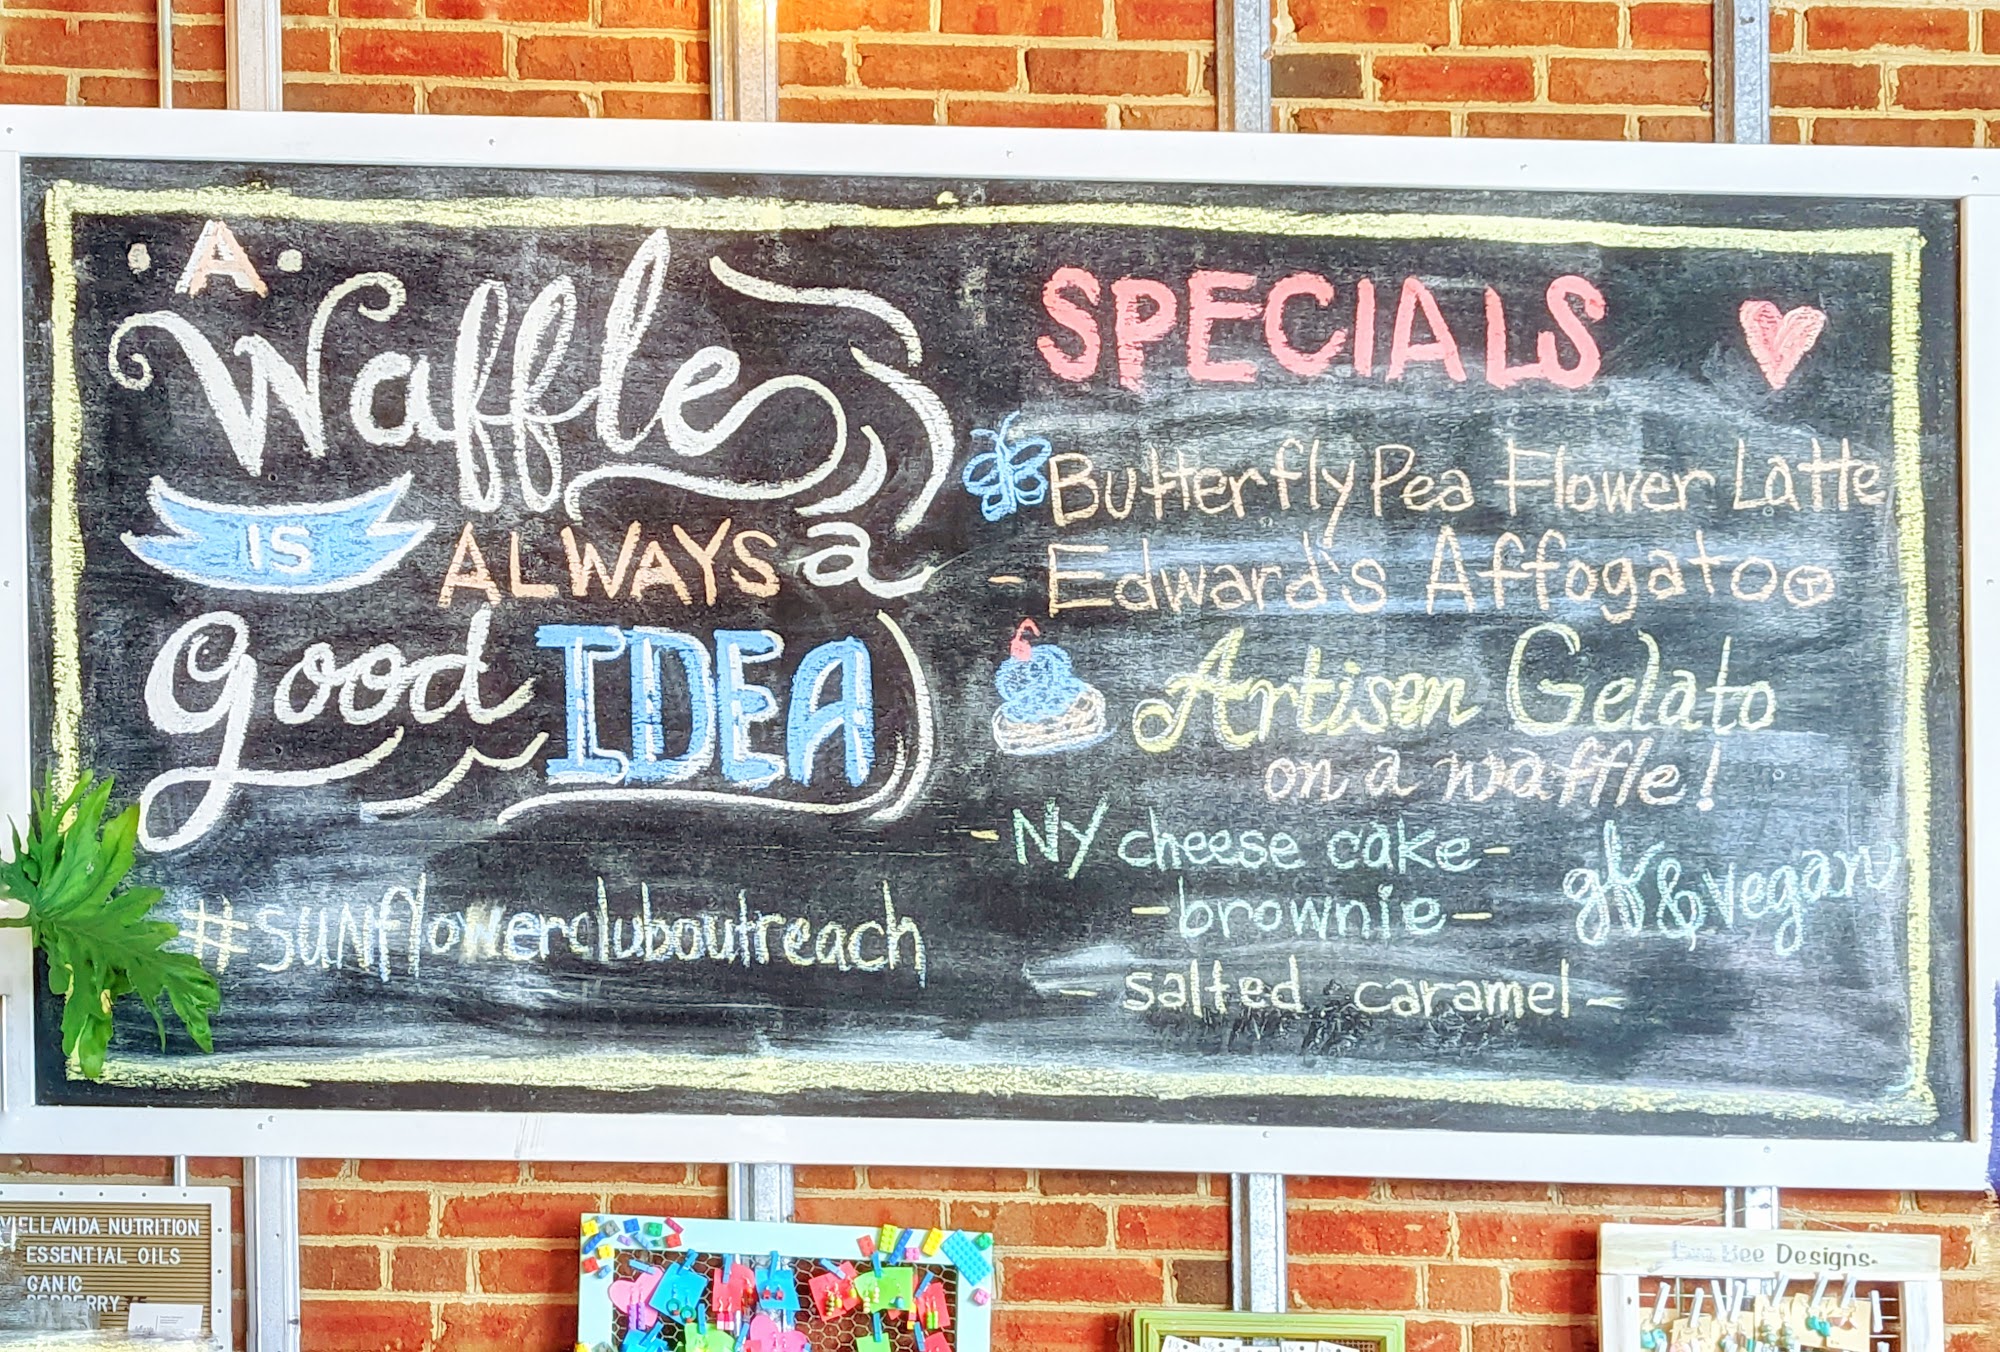 A
Waffle
IS ALWAYS a
good IDEA
#sunflowercluboutreach
SPECIALS
Butterfly Pea Flower Latte
- Edward's Affogato
Artisan Gelato
on a waffle!
- NY cheese cake -
- brownie -
gf & vegan
- salted caramel -
VIELLAVIDA NUTRITION
ESSENTIAL OILS
GANIC
Bee Designs